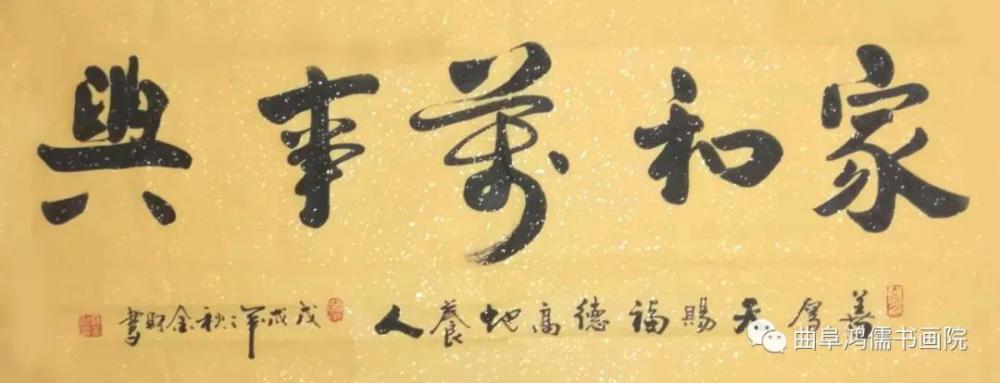 家和萬事興
善厚天賜福德高地養人
戊戌年之秋金財書
曲阜鸿儒书画院